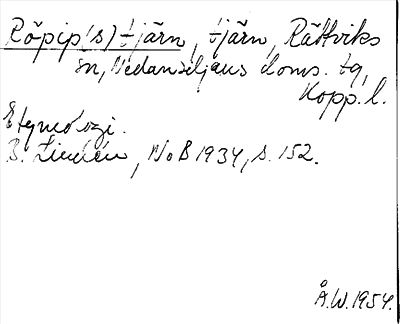 Röpip(s)tjärn, tjärn, Rättviks
sn, Nedansiljans doms. tg,
Kopp. l.
Etymologi.
B. Lindén, NoB 1934, s. 152.
Å.W. 1954.